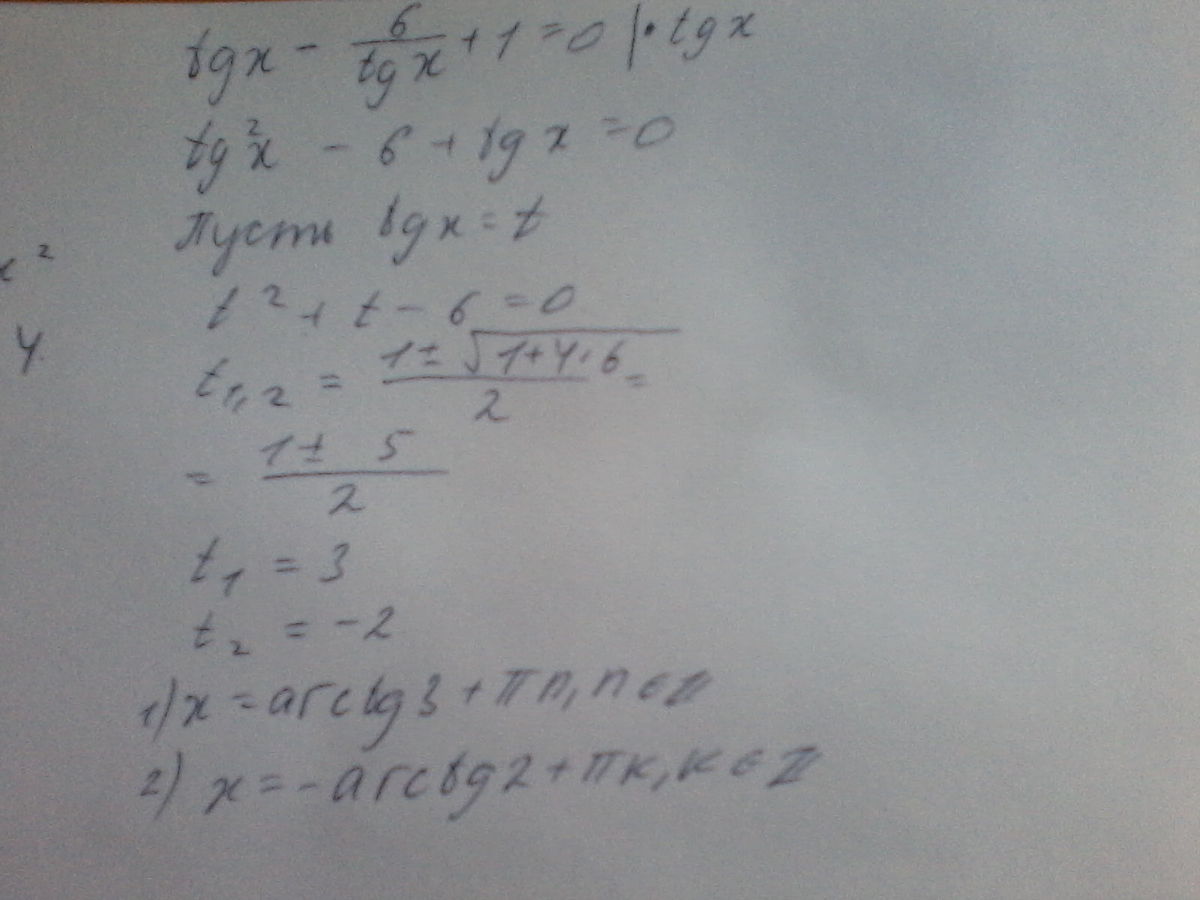 tgx - 6/tgx + 1 = 0 |· tgx
tg²x - 6 + tgx = 0
Пусть tgx = t
x²
t² + t - 6 = 0
4
t₁,₂ = (1 ± √(1+4·6))/2 =
= (1 ± 5)/2
t₁ = 3
t₂ = -2
1) x = arctg3 + πn, n ∈ Z
2) x = -arctg2 + πk, k ∈ Z